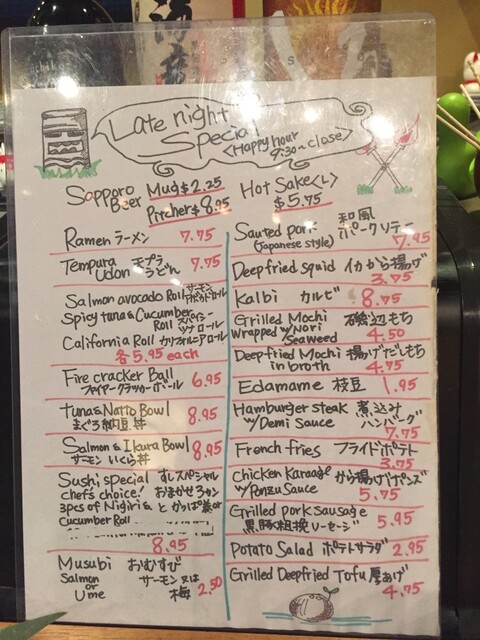 Late night
Special
<Happy hour
9:30~close>
Sapporo Beer Mug $2.25
Pitcher $8.95
Hot Sake <L>
$5.75
Ramen ラーメン 7.75
Tempura Udon 天プラうどん 7.75
Salmon avocado Roll サーモンアボカドロール
Spicy tuna & Cucumber Roll スパイシーツナロール
California Roll カリフォルニアロール
各 5.95 each
Fire cracker Ball 6.95
ファイヤークラッカーボール
Tuna & Natto Bowl 8.95
まぐろ納豆丼
Salmon & Ikura Bowl 8.95
サーモンいくら丼
Sushi special すしスペシャル
chef's choice!
3pcs of Nigiri &
Cucumber Roll
8.95
Musubi おむすび
Salmon or Ume サーモン又は梅 2.50
Sauted pork 和風ポークソテー
(Japanese style) 7.95
Deep fried squid イカから揚げ
3.75
Kalbi カルビ 8.75
Grilled Mochi 磯辺もち
Wrapped w/Nori Seaweed 4.50
Deep-fried Mochi 揚げだしもち
in broth 4.75
Edamame 枝豆 1.95
Hamburger steak 煮込み
w/Demi Sauce ハンバーグ
7.75
French fries フライドポテト
3.75
Chicken Karaage から揚げポンズ
w/Ponzu Sauce 5.75
Grilled pork sausage
黒豚粗挽ソーセージ 5.95
Potato Salad ポテトサラダ 2.95
Grilled Deepfried Tofu 厚あげ
4.75